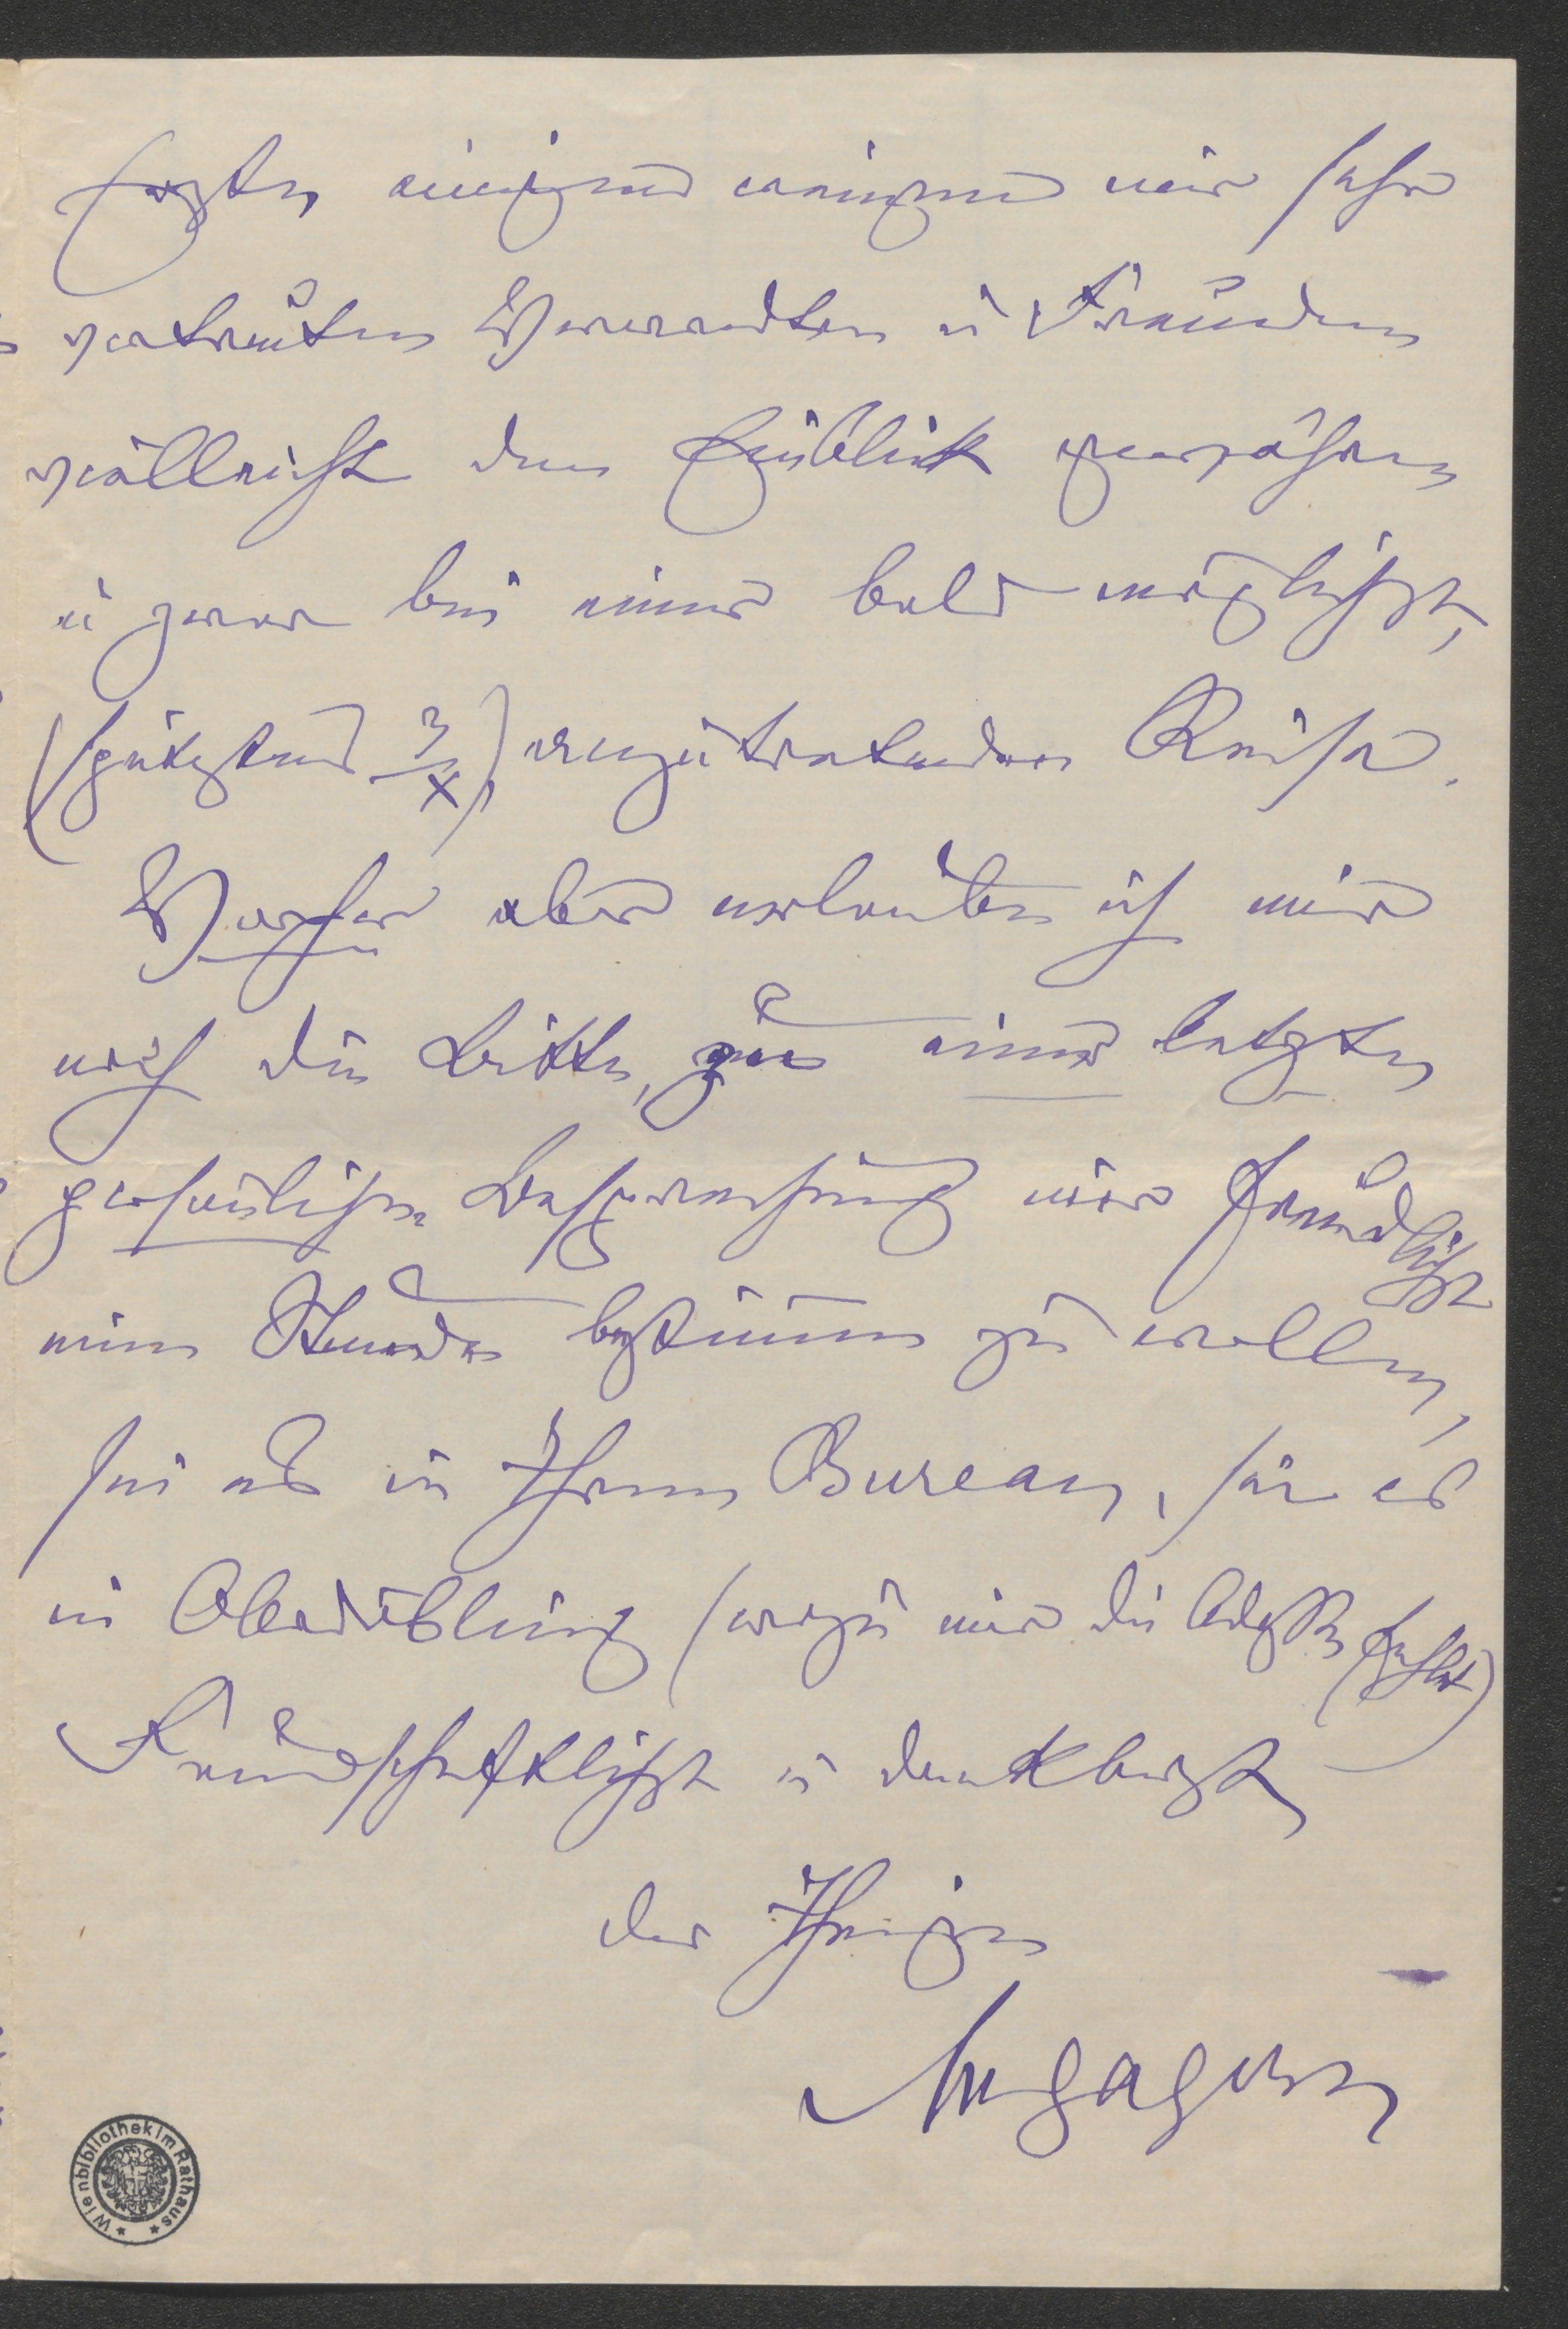 einigen wenigen mir sehr
vertrauten Verwandten u Freunden
vielleicht den Einblick gewähren
u zwar bei einer bald möglichst,
(spätestens 3/X) anzutretenden Reise.
Vorher aber erlaube ich mir
noch die Bitte, zu einer letzten
persönlichen Besprechung mir freundlichst
eine Stunde bestimmen zu wollen,
sei es in Ihrem Bureau, sei es
in (wozu mir die Adresse fehlt)
Freundschaftlichst u dankbarst
der Ihrige
Wienbibliothek im Rathaus